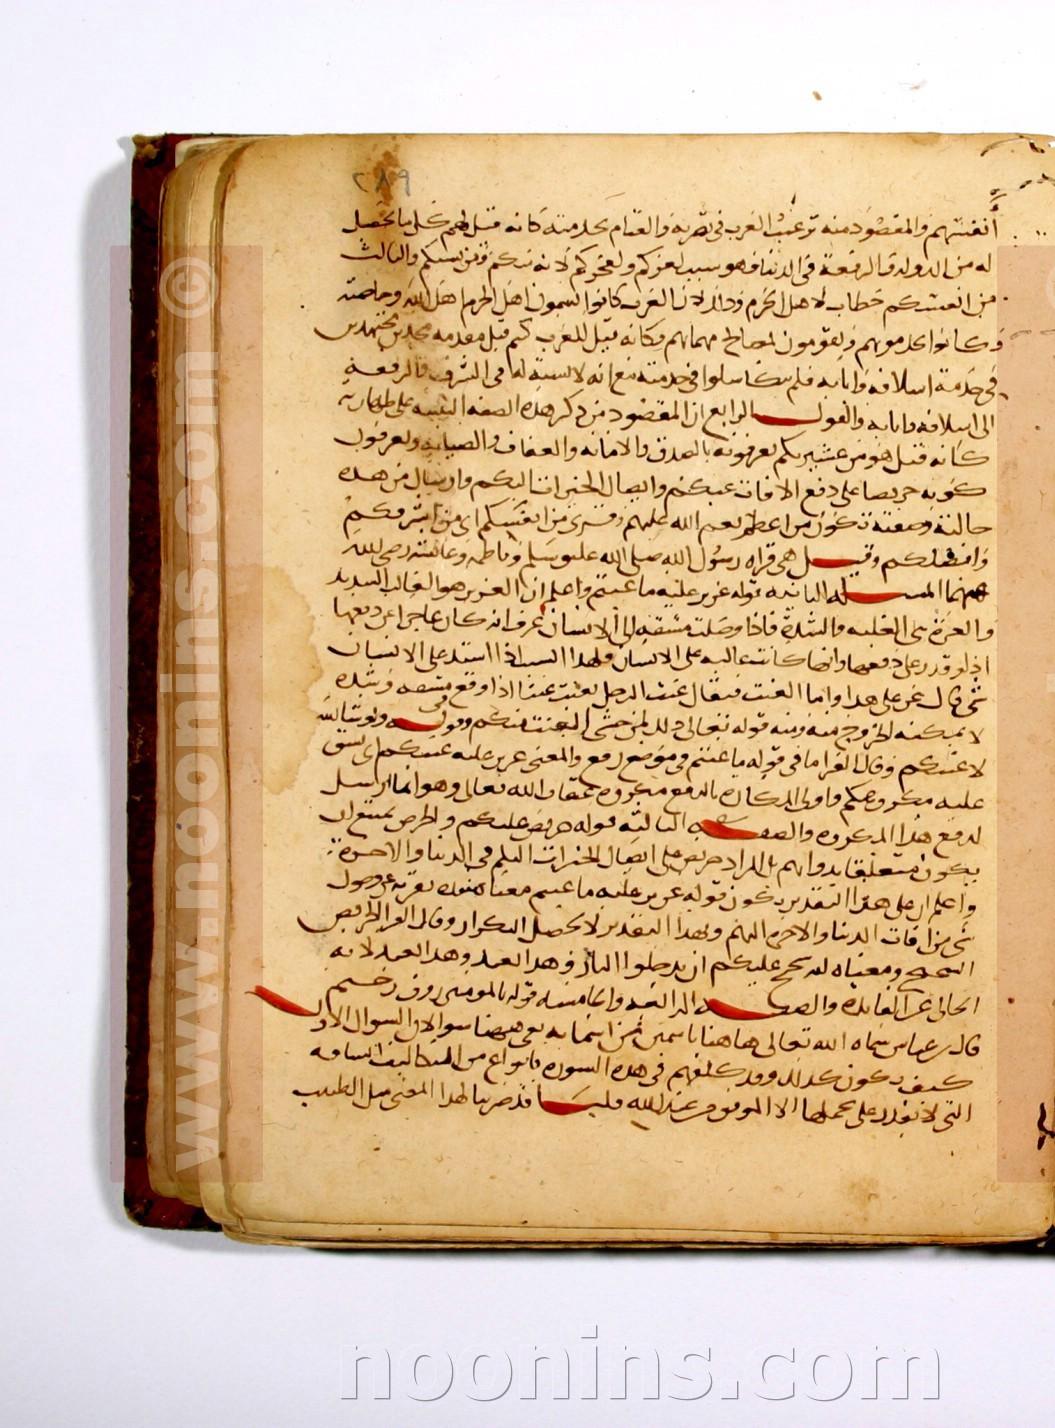 ٢٨٩
أنفسهم والمقصود منه ترغيب العرب في نصرته والقيام بخدمته كانه قيل لهم كل ما يحصل
له من الدولة والرفعة في الدنيا فهو سبب لعزكم ولفخركم لانه منكم ومن نسبكم والثالث
من انفسكم خطاب لاهل الحرم وذلك لان العرب كانوا يسمون اهل الحرم اهل الله وخاصته
وكانوا يخدمونهم ويقومون لمصالح مهماتهم فكانه قيل للعرب كنتم قبل مقدمه مجدين مجتهدين
في خدمة اسلافه وابايه فلم تتكاسلوا في خدمته مع انه لا نسبة له في الشرف والرفعة
الى اسلافه وابايه والقول الرابع ان المقصود من ذكر هذه الصفة التنبيه على طهارته
كانه قيل هو من عشيرتكم تعرفونه بالصدق والامانة والعفاف والصيانة وتعرفون
كونه حريصا على دفع الافات عنكم وايصال الخيرات اليكم وارسال من هذه
حالته وصفته تكون من اعظم نعم الله عليهم وقرى من انفسكم اى من اشرفكم
وافضلكم وقيل هي قراة رسول الله صلى الله عليه وسلم وفاطمة وعايشة رضي الله
عنهما المسئلة الثانية قوله عزيز عليه ما عنتم واعلم ان العزيز هو الغالب الشديد
والعزة هي الغلبة والشدة فاذا وصلت مشقة الى الانسان عرف انه كان عاجزا عن دفعها
اذ لو قدر على دفعها وانها كانت غالبة على الانسان فلهذا السبب اذا اشتد على الانسان
شي قال عز على هذا واما العنت فيقال عنت الرجل يعنت عنتا اذا وقع في مشقة وشدة
لا يمكنه الخروج منه ومنه قوله تعالى ذلك لمن خشي العنت منكم وقوله ولو شا الله
لاعنتكم وقال الفرا ما في قوله ما عنتم في موضع رفع والمعنى عزيز عليه عنتكم اى يشق
عليه مكروهكم واولى المكاره بالدفع مكروه عقاب الله تعالى وهو انما ارسل
لدفع هذا المكروه والصفة الثالثة قوله حريص عليكم والحرص يمتنع ان
يكون متعلقا بذواتهم بل المراد حريص على ايصال الخيرات اليكم في الدنيا والاخرة
واعلم ان على هذا التقدير يكون قوله عزيز عليه ما عنتم معناه شديد معزته عن وصول
شي من افات الدنيا والاخرة اليهم وبهذا التقدير لا يحصل التكرار وقال الفرا الحريص
الشحيح ومعناه انه شحيح عليكم ان تدخلوا النار وهذا بعيد لانه
الخالي عن الفايدة والصفة الرابعة والخامسة قوله بالمومنين روف رحيم
قال ابن عباس سماه الله تعالى هاهنا باسمين من اسمايه بقي هاهنا سوالان السوال الاول
كيف يكون كذلك وقد كلفهم في هذه السورة بانواع من التكاليف الشاقة
التي لا يقدر على تحملها الا الموفق من عند الله قلنا قد ضربنا لهذا المعنى مثل الطبيب
www.noonins.com ©
noonins.com